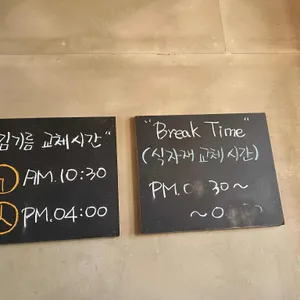 김기름 교체시간"
AM.10:30
PM.04:00
"Break Time"
(식자재 교체시간)
PM. 30~